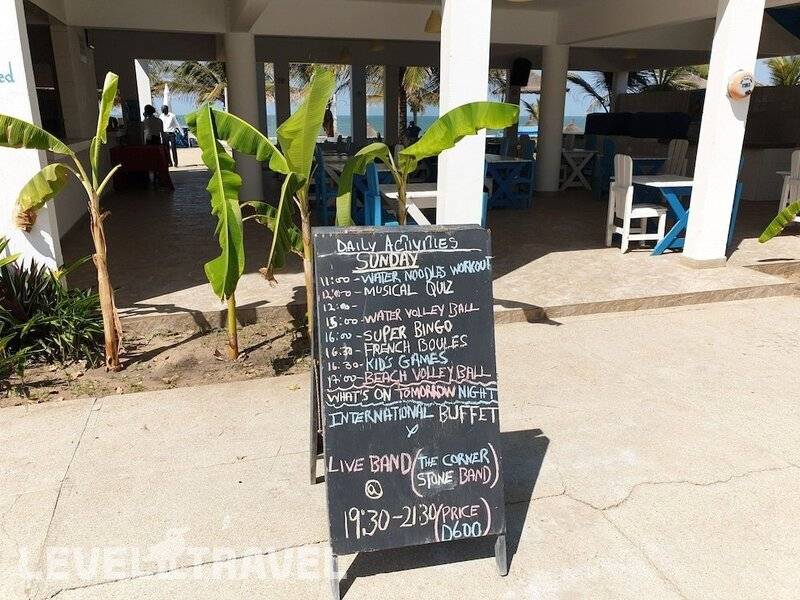 ed
DAILY ACTIVITIES
SUNDAY
11:00 - WATER NOODLES WORKOUT
12:00 - MUSICAL QUIZ
12:00 -
15:00 - WATER VOLLEY BALL
16:00 - SUPER BINGO
16:30 - FRENCH BOULES
16:30 - KID'S GAMES
17:00 - BEACH VOLLEY BALL
WHAT'S ON TOMORROW NIGHT
INTERNATIONAL BUFFET
x
LIVE BAND (THE CORNER
STONE BAND)
@
19:30 - 21:30 (PRICE
D600)
LEVEL TRAVEL